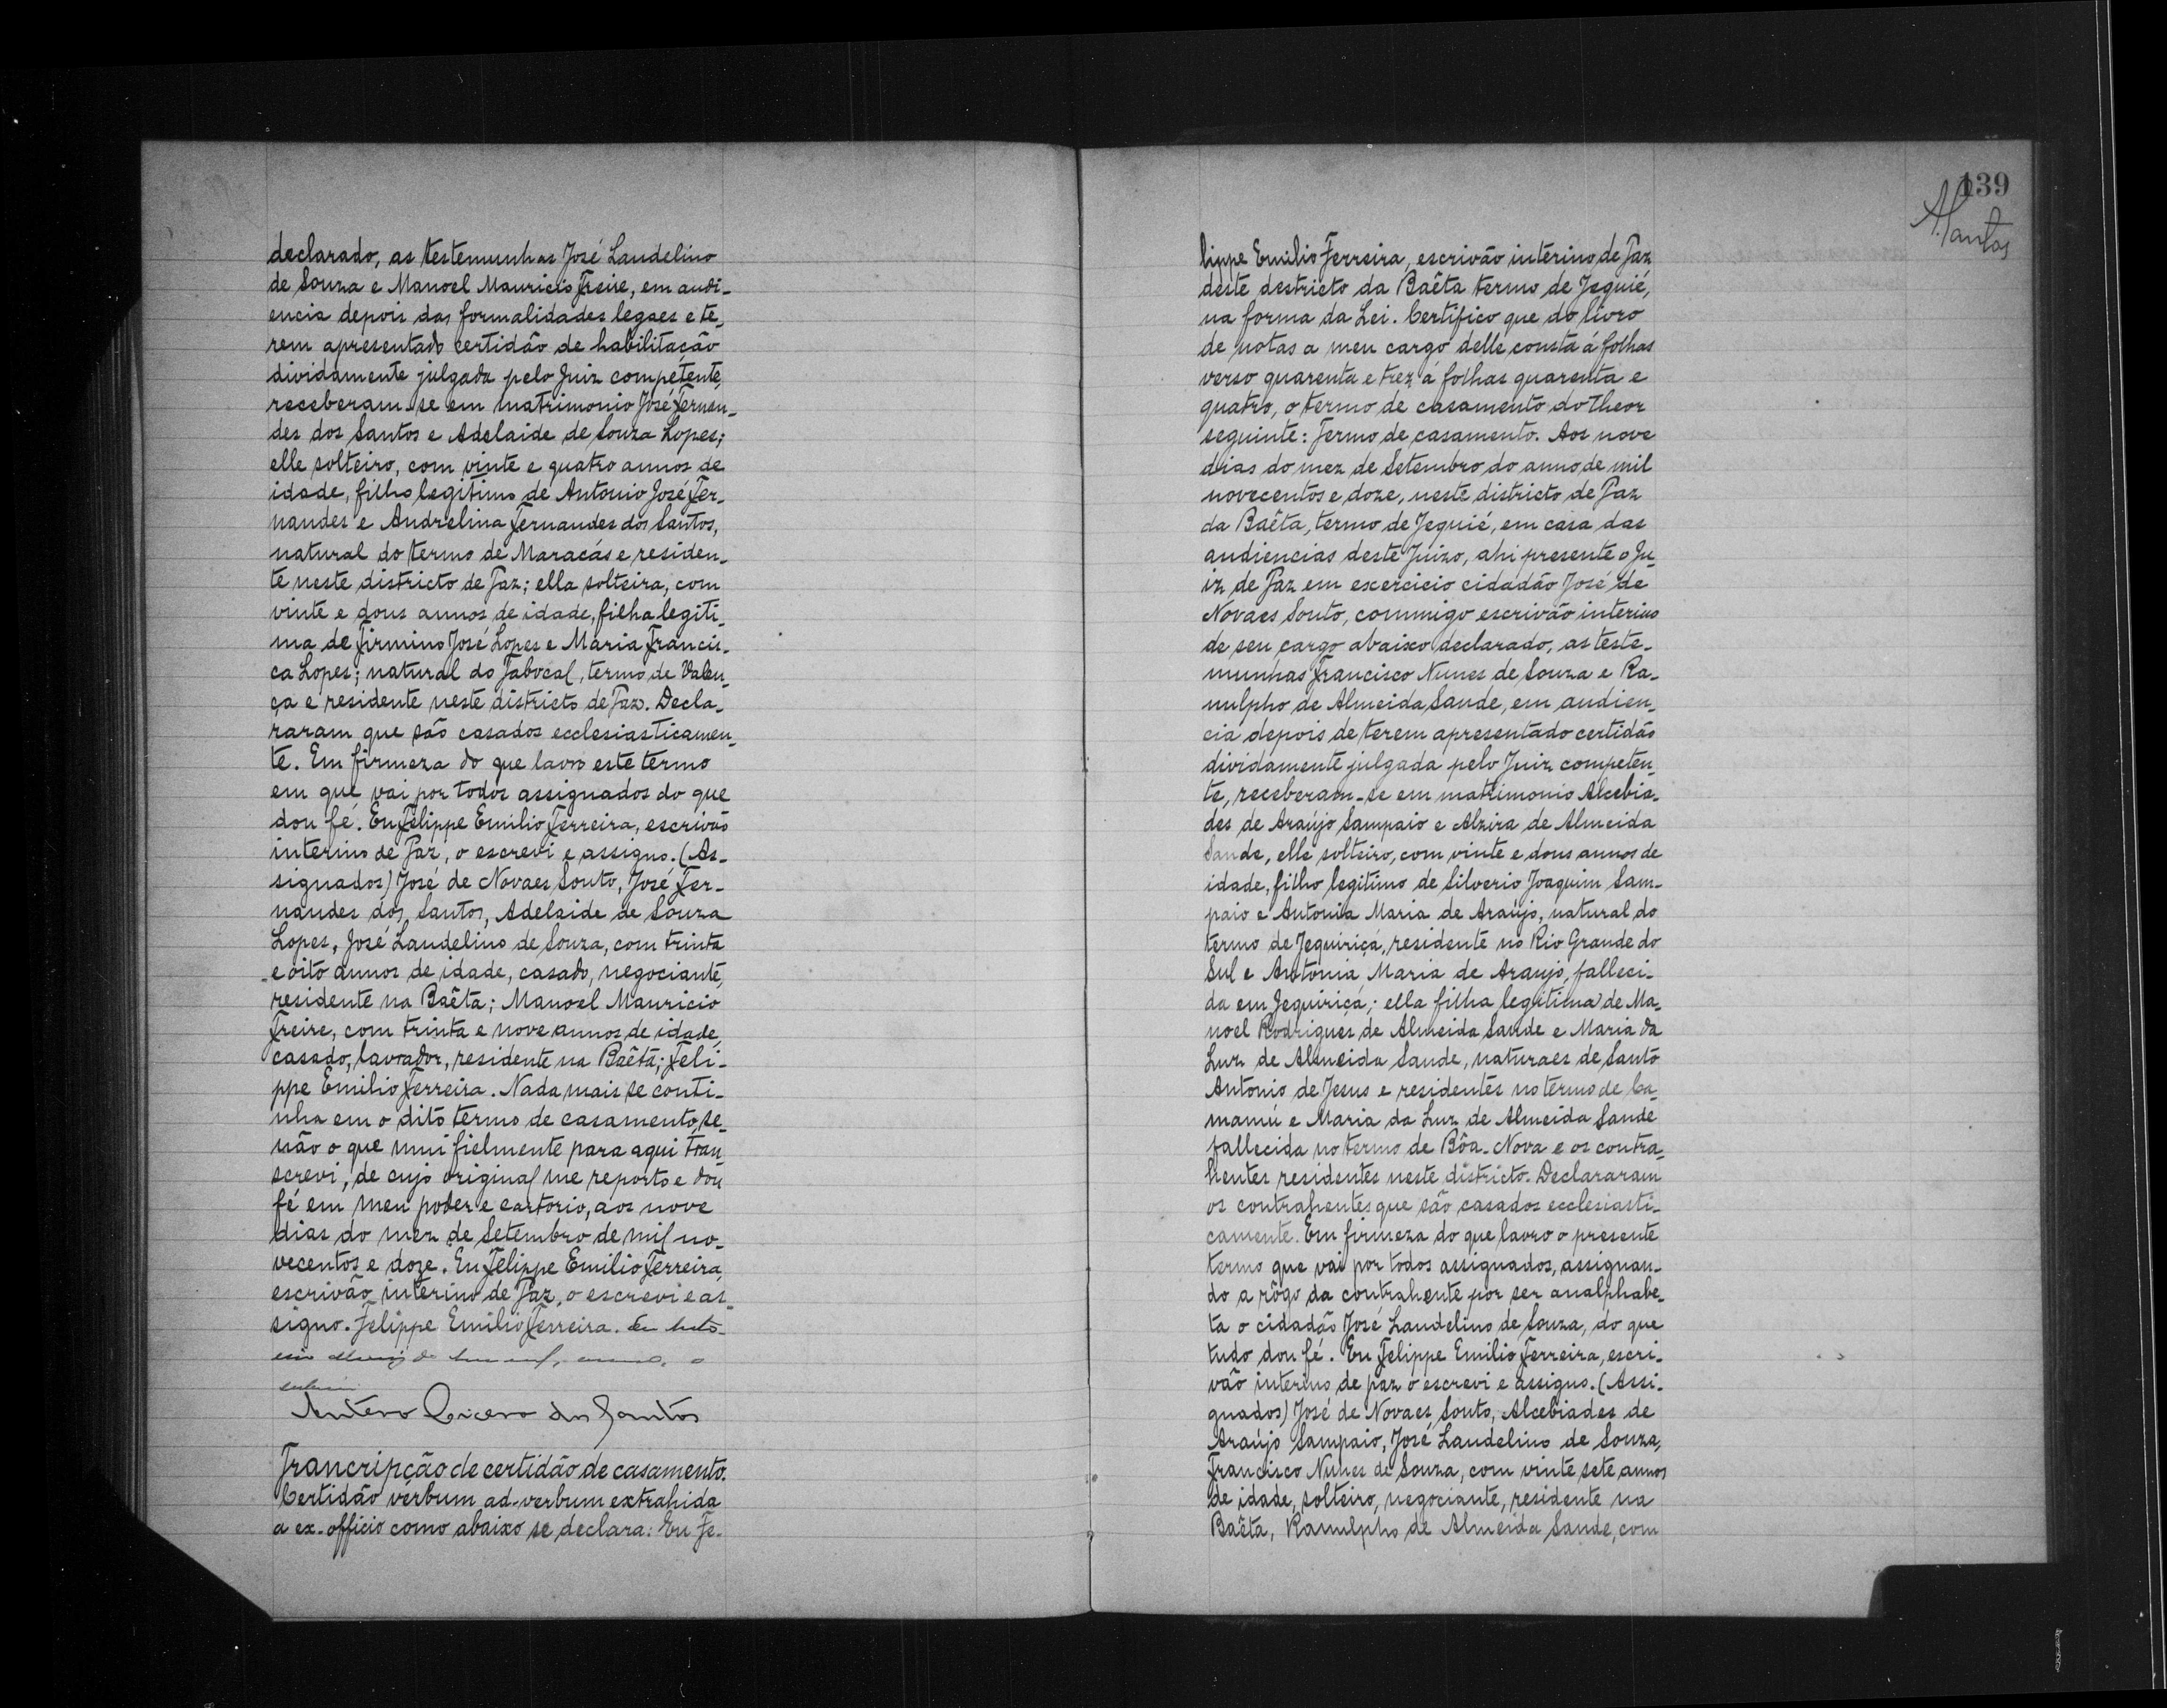 declarado, as testemunhas José Laudelino
de Souza e Manoel Mauricio Freire, em audi-
encia depois das formalidades legaes e te-
rem apresentado certidão de habilitação
dividamente julgada pelo Juiz competente,
receberam-se em matrimonio José Fernan-
des dos Santos e Adelaide de Souza Lopes;
elle solteiro, com vinte e quatro annos de
idade, filho legitimo de Antonio José Fer-
nandes e Andrelina Fernandes dos Santos,
natural do termo de Maracás e residen-
te neste districto de Paz; ella solteira, com
vinte e dous annos de idade, filha legiti-
ma de Firmino José Lopes e Maria Francis-
ca Lopes; natural do Jabocal, termo de Valen-
ça e residente neste districto de Paz. Decla-
raram que são casados ecclesiasticamen-
te. Em firmeza do que lavro este termo
em que vai por todos assignados do que
dou fé. Eu Felippe Emilio Ferreira, escrivão
interino de Paz, o escrevi e assigno. (As-
signados) José de Novaes Souto, José Fer-
nandes dos Santos, Adelaide de Souza
Lopes, José Laudelino de Souza, com trinta
e oito annos de idade, casado, negociante,
residente na Baêta; Manoel Mauricio
Freire, com trinta e nove annos de idade,
casado, lavrador, residente na Baêta; Feli-
ppe Emilio Ferreira. Nada mais se conti-
nha em o dito termo de casamento, se-
não o que mui fielmente para aqui tran-
screvi, de cujo original me reporto e dou
fé em meu poder e cartorio, aos nove
dias do mez de Setembro de mil no-
vecentos e doze. Eu Felippe Emilio Ferreira,
escrivão interino de Paz, o escrevi e as-
signo. Felippe Emilio Ferreira. Eu
Antero Cicero dos Santos
Trancripção de certidão de casamento.
Certidão verbum ad-verbum extrahida
a ex-officio como abaixo se declara: Eu Fe-
139
ASantos
lippe Emilio Ferreira, escrivão interino de Paz
deste destricto da Baêta termo de Jequié,
na forma da Lei. Certifico que do livro
de notas a meu cargo delle consta á folhas
verso quarenta e trez á folhas quarenta e
quatro, o termo de casamento do theor
seguinte: Termo de casamento. Aos nove
dias do mez de Setembro do anno de mil
novecentos e doze, neste districto de Paz
da Baêta, termo de Jequié, em casa das
audiencias deste Juizo, ahi presente o Ju-
iz de Paz em excercicio cidadão José de
Novaes Souto, commigo escrivão interino
de seu cargo abaixo declarado, as teste-
munhas Francisco Nunes de Souza e Ra-
nulpho de Almeida Sande, em audien-
cia depois de terem apresentado certidão
dividamente julgada pelo Juiz competen-
te, receberam-se em matrimonio Alcebia-
des de Araújo Sampaio e Alzira de Almeida
Sande, elle solteiro, com vinte e dous annos de
idade, filho legitimo de Silverio Joaquim Sam-
paio e Antonia Maria de Araújo, natural do
termo de Jequiriçá, residente no Rio Grande do
Sul e Antonia Maria de Araujo, falleci-
da em Jequiriçá; ella filha legitima de Ma-
noel Rodrigues de Almeida Sande e Maria da
Luz de Almeida Sande, naturaes de Santo
Antonio de Jesus e residentes no termo de Ca-
mamú e Maria da Luz de Almeida Sande
fallecida no termo de Bôa-Nova e os contra-
hentes residentes neste districto. Declararam
os contrahentes que são casados ecclesiasti-
camente. Em firmeza do que lavro o presente
termo que vai por todos assignados, assignan-
do a rôgo da contrahente por ser analphabe-
ta o cidadão José Laudelino de Souza, do que
tudo dou fé. Eu Felippe Emilio Ferreira, escri-
vão interino de paz o escrevi e assigno. (Assi-
gnados) José de Novaes Souto, Alcebiades de
Araújo Sampaio, José Laudelino de Souza,
Francisco Nunes de Souza, com vinte sete annos
de idade, solteiro, negociante, residente na
Baêta, Ranulpho de Almeida Sande, com